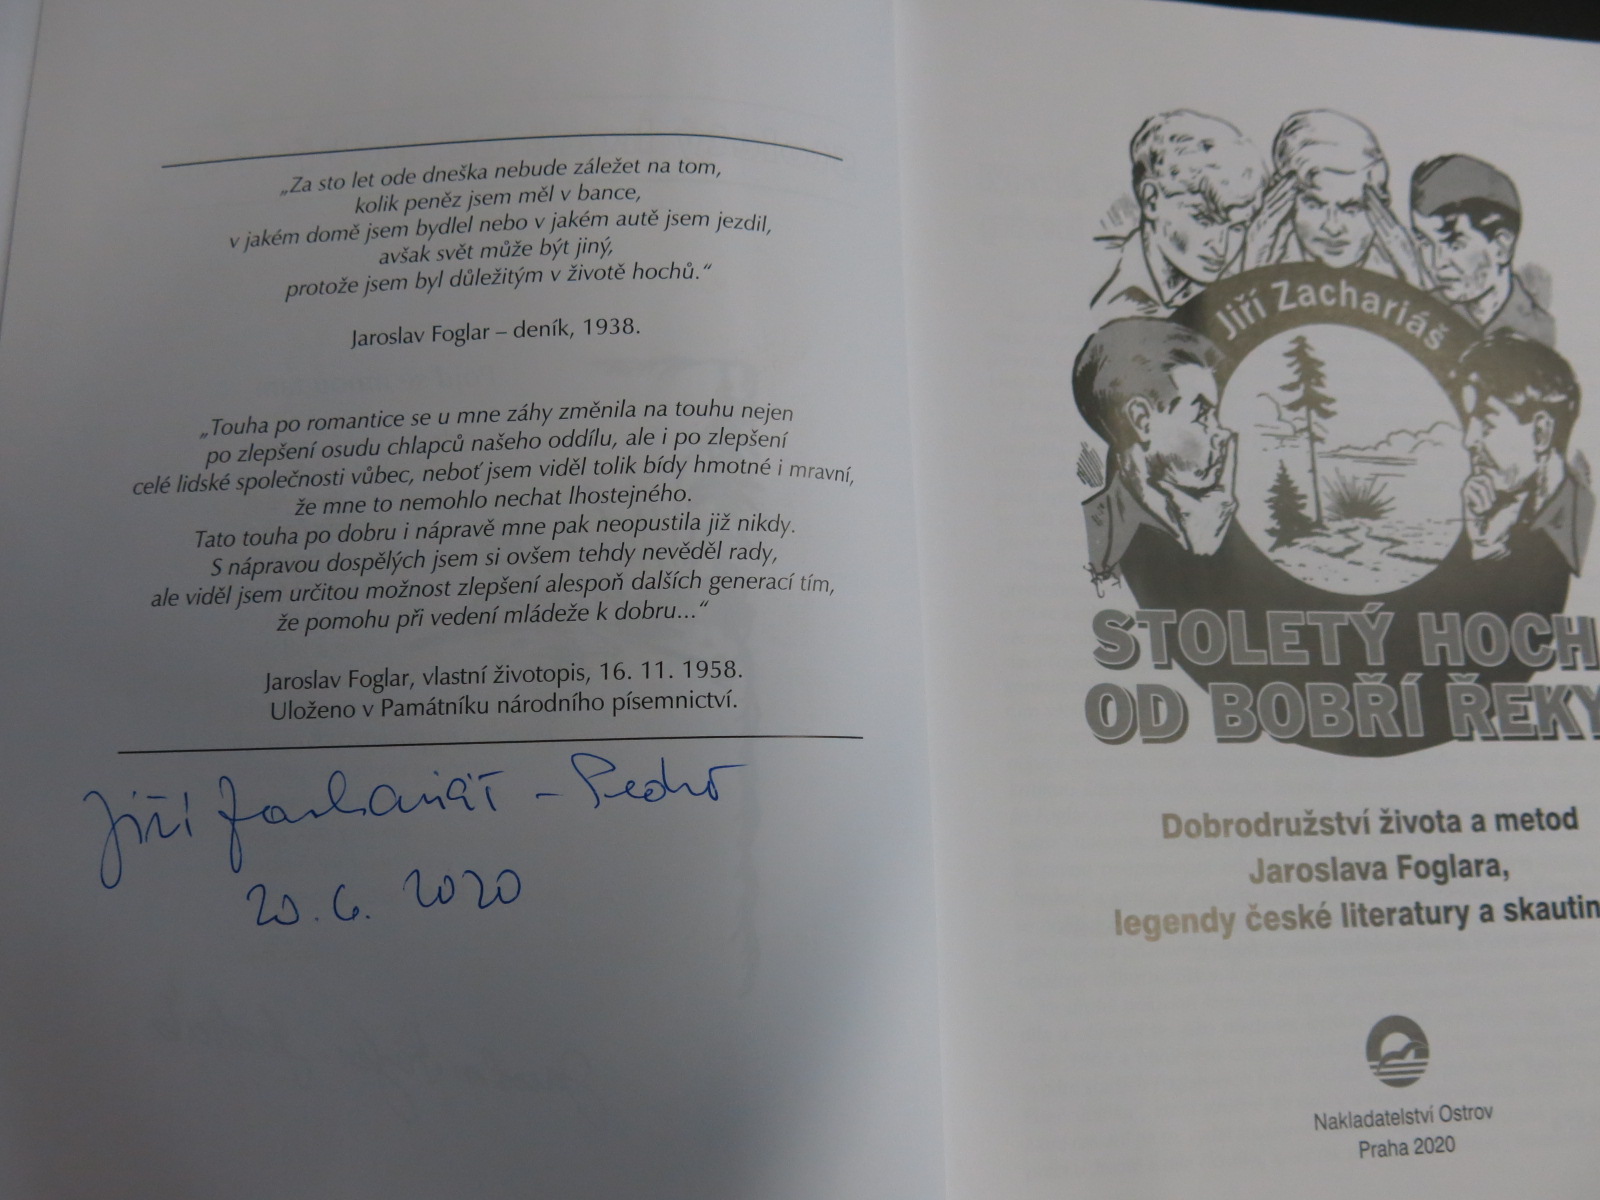 „Za sto let ode dneška nebude záležet na tom,
kolik peněz jsem měl v bance,
v jakém domě jsem bydlel nebo v jakém autě jsem jezdil,
avšak svět může být jiný,
protože jsem byl důležitým v životě hochů.“
Jaroslav Foglar – deník, 1938.
„Touha po romantice se u mne záhy změnila na touhu nejen
po zlepšení osudu chlapců našeho oddílu, ale i po zlepšení
celé lidské společnosti vůbec, neboť jsem viděl tolik bídy hmotné i mravní,
že mne to nemohlo nechat lhostejného.
Tato touha po dobru i nápravě mne pak neopustila již nikdy.
S nápravou dospělých jsem si ovšem tehdy nevěděl rady,
ale viděl jsem určitou možnost zlepšení alespoň dalších generací tím,
že pomohu při vedení mládeže k dobru...“
Jaroslav Foglar, vlastní životopis, 16. 11. 1958.
Uloženo v Památníku národního písemnictví.
Jiří Zachariáš – Pedro
20. 6. 2020
Jiří Zachariáš
STOLETÝ HOCH
OD BOBŘÍ ŘEKY
Dobrodružství života a metod
Jaroslava Foglara,
legendy české literatury a skautin
Nakladatelství Ostrov
Praha 2020